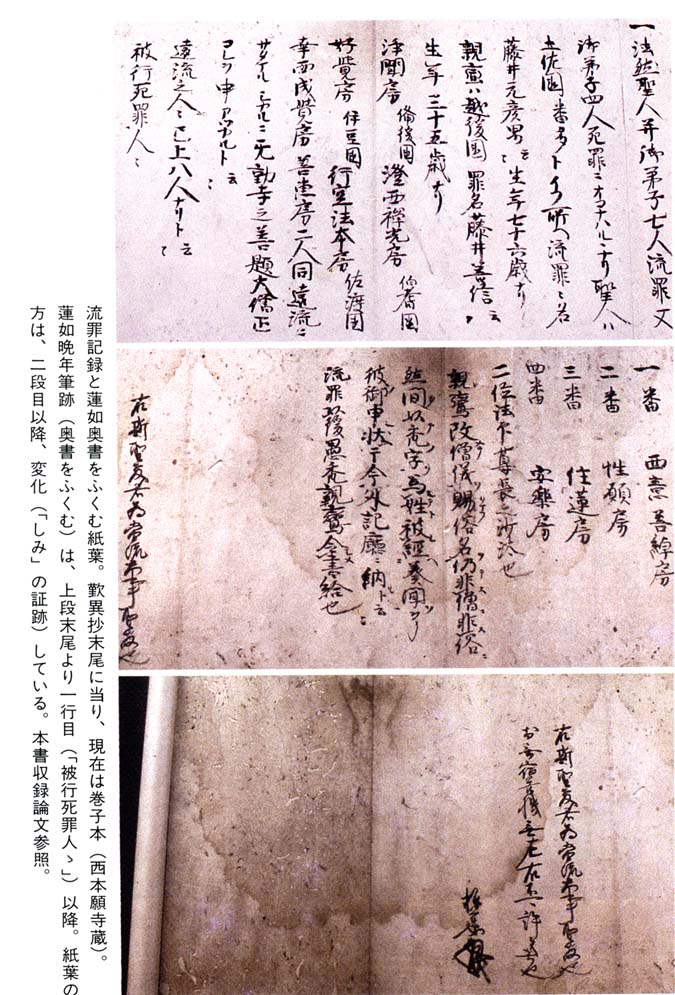 一法然聖人并御弟子七人流罪又
御弟子四人死罪ニオコナハルヽナリ聖人ハ
土佐國番多トイフ所ヘ流罪罪名
藤井元彦男云々生年七十六歳ナリ
親鸞ハ越後國罪名藤井善信云々
生年三十五歳ナリ
浄聞房 備後國 澄西禅光房 伯耆國
好覺房 伊豆國 行空法本房 佐渡國
幸西成覺房善恵房二人同遠流ニ
サタマルシカルニ无動寺之善題大僧正
コレヲ申アツカルト云々
遠流之人々已上八人ナリト云々
被行死罪人々
一番 西意善綽房
二番 性願房
三番 住蓮房
四番 安樂房
二位法印尊長之沙汰也
親鸞改僧儀賜俗名仍非僧非俗
然間以禿字為姓被經奏聞了
彼御申状于今外記廳ニ納ト云々
流罪以後愚禿親鸞令書給也
右斯聖教者為當流大事聖教也
右斯聖教者為當流大事聖教也
於無宿善機無左右不可許之者也
流罪記録と蓮如奥書をふくむ紙葉。歎異抄末尾に当り、現在は巻子本（西本願寺蔵）。
蓮如晩年筆跡（奥書をふくむ）は、上段末尾より一行目（「被行死罪人ゝ」）以降。紙葉の
方は、二段目以降、変化（「しみ」の証跡）している。本書収録論文参照。